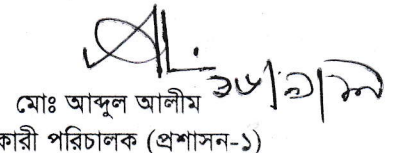 মোঃ আব্দুল আলীম
কারী পরিচালক (প্রশাসন-১)